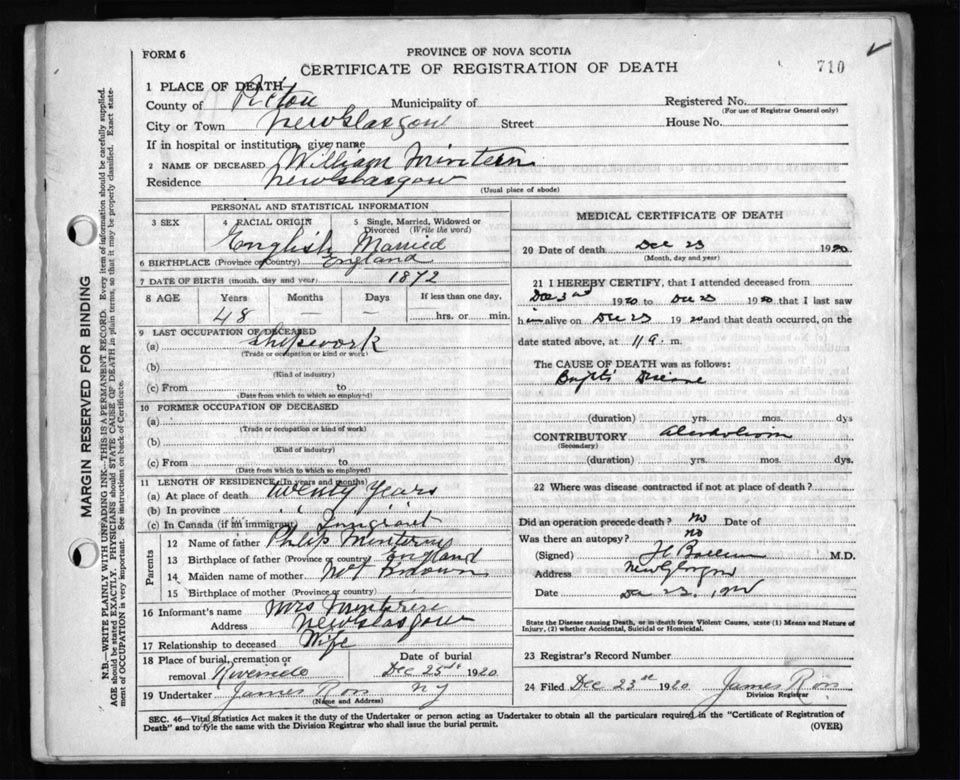 FORM 6
PROVINCE OF NOVA SCOTIA
CERTIFICATE OF REGISTRATION OF DEATH
710
MARGIN RESERVED FOR BINDING
N.B.—WRITE PLAINLY WITH UNFADING INK—THIS IS A PERMANENT RECORD. Every item of information should be carefully supplied.
AGE should be stated EXACTLY. PHYSICIANS should STATE CAUSE OF DEATH in plain terms, so that it may be properly classified. Exact state-
ment of OCCUPATION is very important. See instructions on back of Certificate.
1 PLACE OF DEATH
County of Pictou Municipality of
Registered No.
(For use of Registrar General only)
City or Town New Glasgow Street House No.
If in hospital or institution, give name
2 NAME OF DECEASED William Mintern
Residence New Glasgow
(Usual place of abode)
PERSONAL AND STATISTICAL INFORMATION
3 SEX 4 RACIAL ORIGIN English 5 Single, Married, Widowed or Divorced (Write the word) Married
6 BIRTHPLACE (Province or Country) England
7 DATE OF BIRTH (month, day and year) 1872
8 AGE Years Months Days If less than one day,
48 — — hrs. or min.
9 LAST OCCUPATION OF DECEASED
(a)
(Trade or occupation or kind or work)
(b)
(Kind of industry)
(c) From to
(Date from which to which so employed)
10 FORMER OCCUPATION OF DECEASED
(a)
(Trade or occupation or kind of work)
(b)
(Kind of industry)
(c) From to
(Date from which to which so employed)
11 LENGTH OF RESIDENCE (In years and months)
(a) At place of death Twenty Years
(b) In province " "
(c) In Canada (if an immigrant) Imigrant
Parents
12 Name of father Philip Mintern
13 Birthplace of father (Province or country) England
14 Maiden name of mother Not Known
15 Birthplace of mother (Province or country)
16 Informant's name Mrs Mintern
Address New Glasgow
17 Relationship to deceased Wife
18 Place of burial, cremation or removal Riverside Date of burial Dec 25 1920
19 Undertaker James Ross
(Name and Address)
MEDICAL CERTIFICATE OF DEATH
20 Date of death Dec 23 1920
(Month, day and year)
21 I HEREBY CERTIFY, that I attended deceased from
Dec 3rd 1920 to Dec 23 1920 that I last saw
him alive on Dec 23 1920 and that death occurred, on the
date stated above, at 11 a. m.
The CAUSE OF DEATH was as follows:
Disease
(duration) yrs. mos. dys
CONTRIBUTORY Alcoholism
(Secondary)
(duration) yrs. mos. dys.
22 Where was disease contracted if not at place of death?
Did an operation precede death? no Date of
Was there an autopsy? no
(Signed) M.D.
Address New Glasgow
Date Dec 23, 1920
State the Disease causing Death, or in death from Violent Causes, state (1) Means and Nature of
Injury, (2) whether Accidental, Suicidal or Homicidal.
23 Registrar's Record Number
24 Filed Dec 23 1920 James Ross
Division Registrar
SEC. 46—Vital Statistics Act makes it the duty of the Undertaker or person acting as Undertaker to obtain all the particulars required in the "Certificate of Registration of
Death" and to fyle the same with the Division Registrar who shall issue the burial permit.
(OVER)